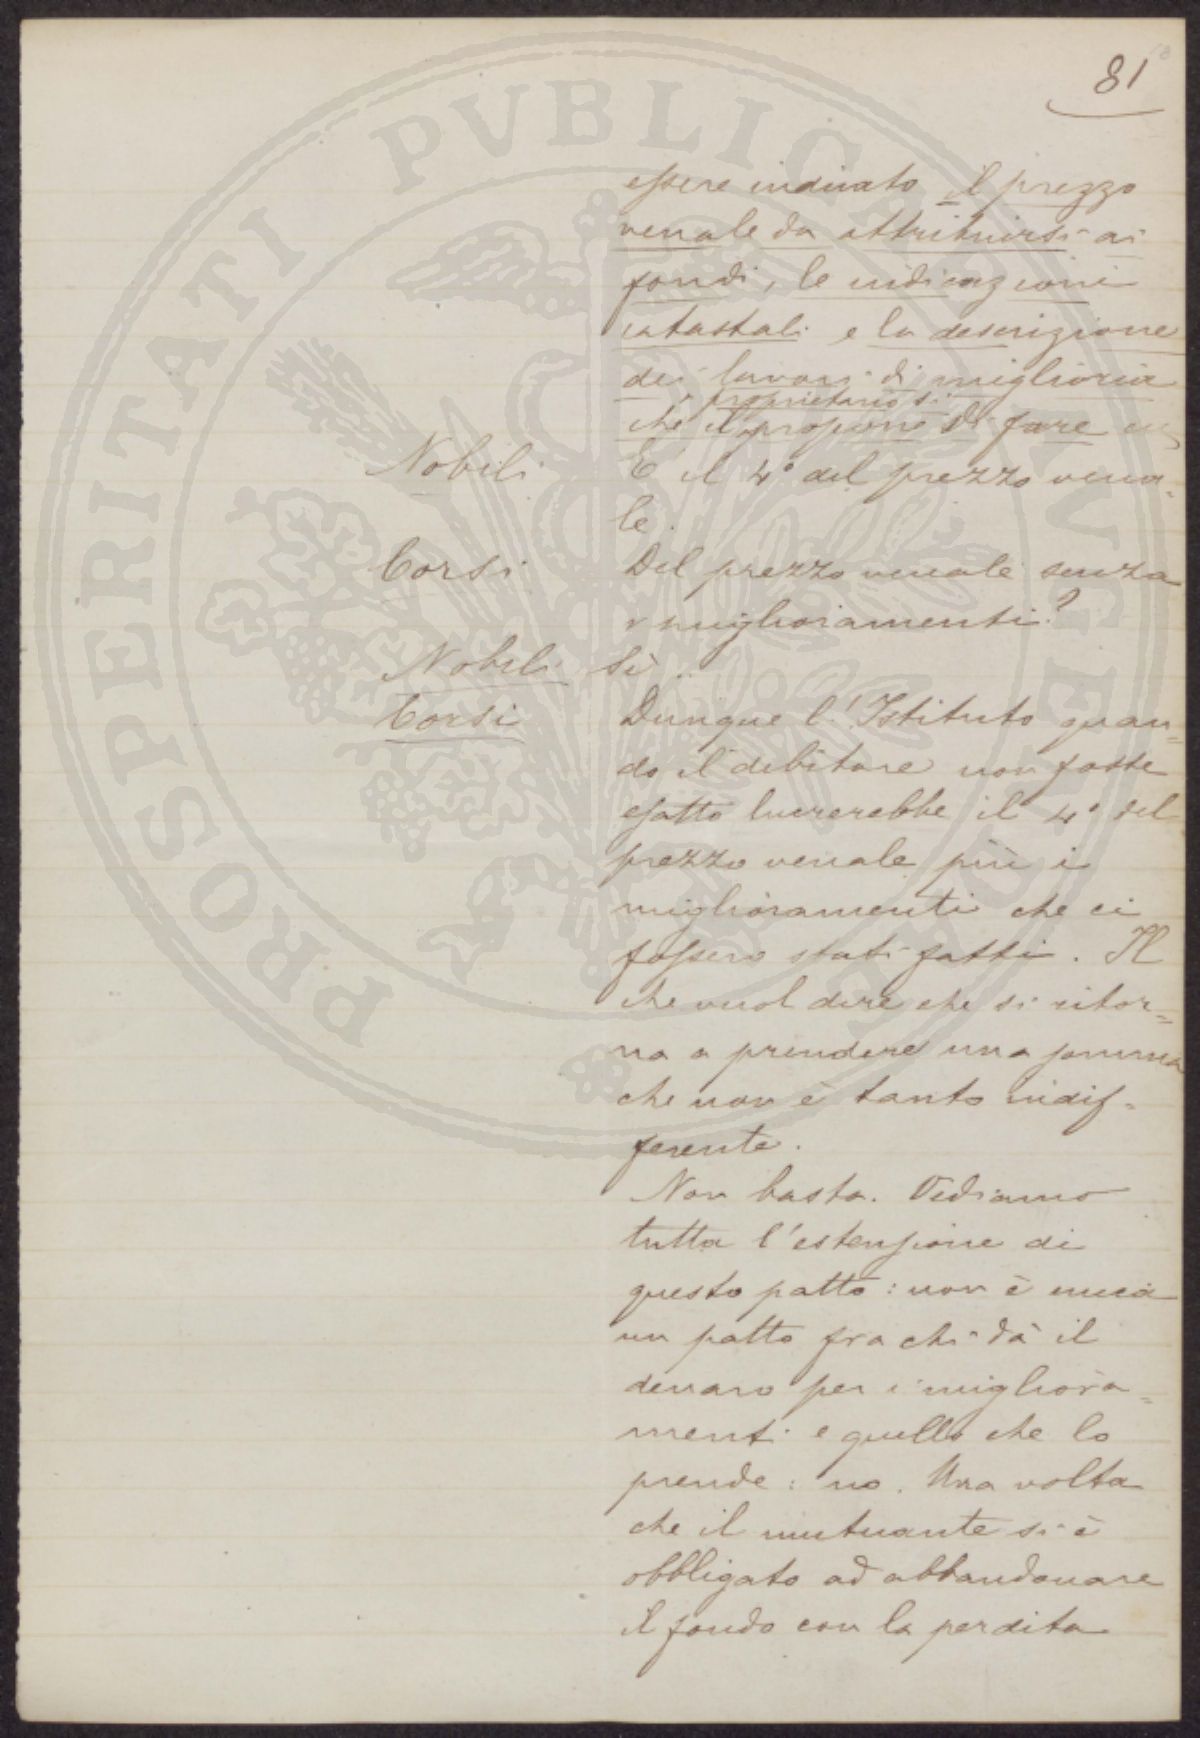 81
essere indicato il prezzo
venale da attribuirsi ai
fondi, le indicazioni
catastali e la descrizione
dei lavori di miglioria
proprietario si
che il propone di fare
Nobili È il 4° del prezzo vena-
le.
Corsi Del prezzo venale senza
i miglioramenti?
Nobili Sì
Corsi Dunque l'Istituto quan=
do il debitore non fosse
esatto lucrerebbe il 4° del
prezzo venale più i
miglioramenti che ci
fossero stati fatti. Il
che vuol dire che si ritor=
na a prendere una somma
che non è tanto indif-
ferente.
Non basta. Vediamo
tutta l'estensione di
questo patto: non è mica
un patto fra chi dà il
denaro per i migliora=
menti e quello che lo
prende: no. Una volta
che il mutuante si è
obbligato ad abbandonare
il fondo con la perdita
PROSPERITATI PVBLICAE AVGENDAE